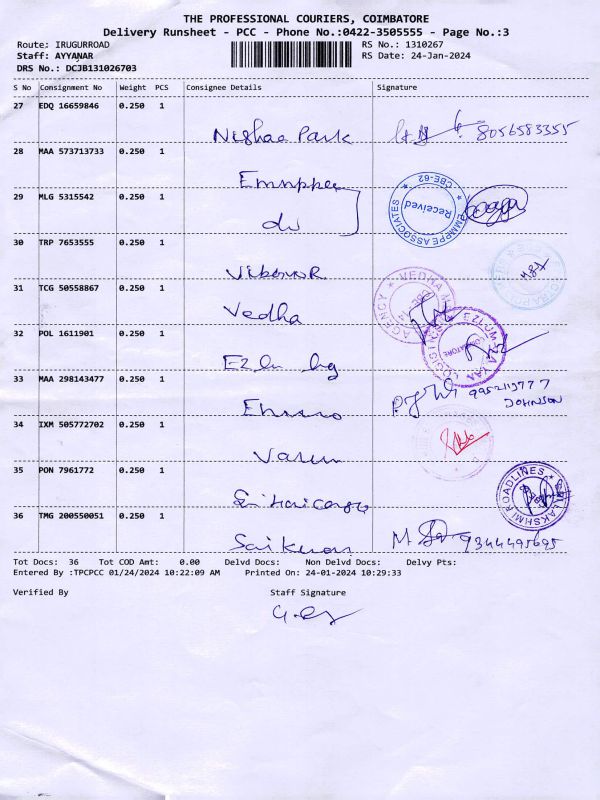 THE PROFESSIONAL COURIERS, COIMBATORE
Delivery Runsheet - PCC - Phone No.:0422-3505555 - Page No.:3
Route: IRUGURROAD RS No.: 1310267
Staff: AYYANAR RS Date: 24-Jan-2024
DRS No.: DCJB131026703
S No Consignment No Weight PCS Consignee Details Signature
27 EDQ 16659846 0.250 1
Nishaa Park 8056583355
28 MAA 573713733 0.250 1
CBE-62
29 MLG 5315542 0.250 1
Received
EMMPPE ASSOCIATES
30 TRP 7653555 0.250 1
31 TCG 50558867 0.250 1
Vedha
VEDHA
AGENCY
32 POL 1611901 0.250 1
33 MAA 298143477 0.250 1
9952113777
JOHNSON
34 IXM 505772702 0.250 1
Varun
35 PON 7961772 0.250 1
LAKSHMI ROADLINES
36 TMG 200550051 0.250 1
9344495695
Tot Docs: 36 Tot COD Amt: 0.00 Delvd Docs: Non Delvd Docs: Delvy Pts:
Entered By :TPCPCC 01/24/2024 10:22:09 AM Printed On: 24-01-2024 10:29:33
Verified By Staff Signature